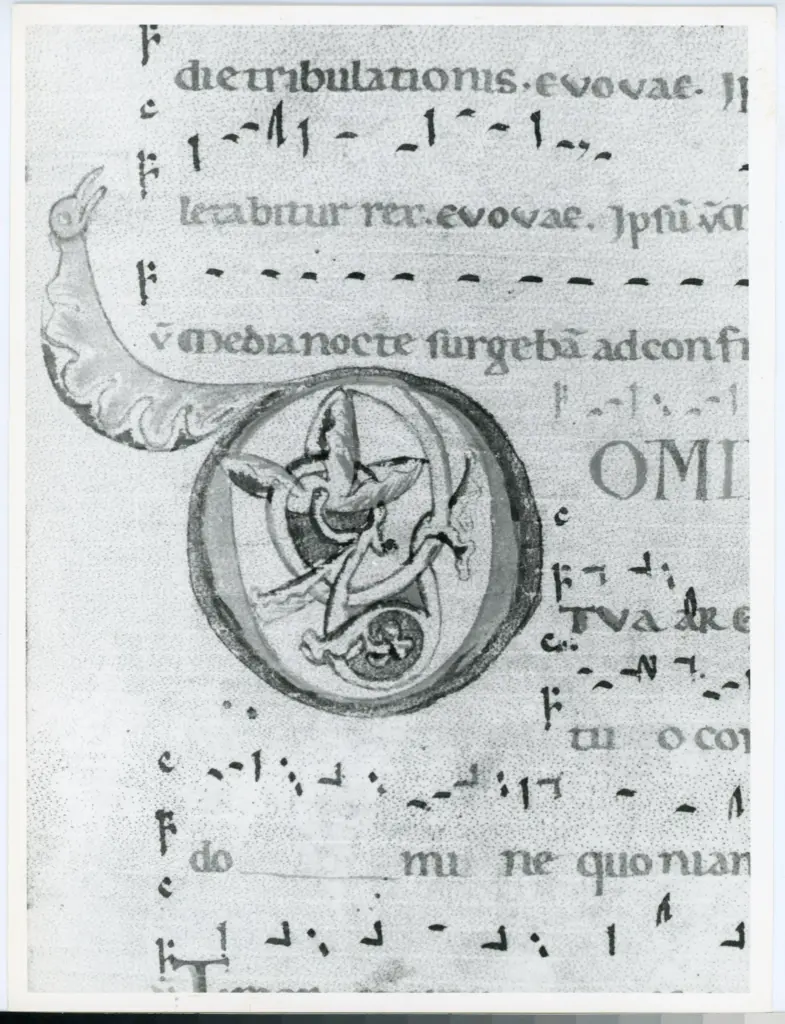 dietribulationis. evovae. Ip
letabitur rex. evovae. Ipsū v̄ M
v̄ Media nocte surgebā ad confi
DOMI
TUA AR E
tu o con
do mi ne quoniam
Timor